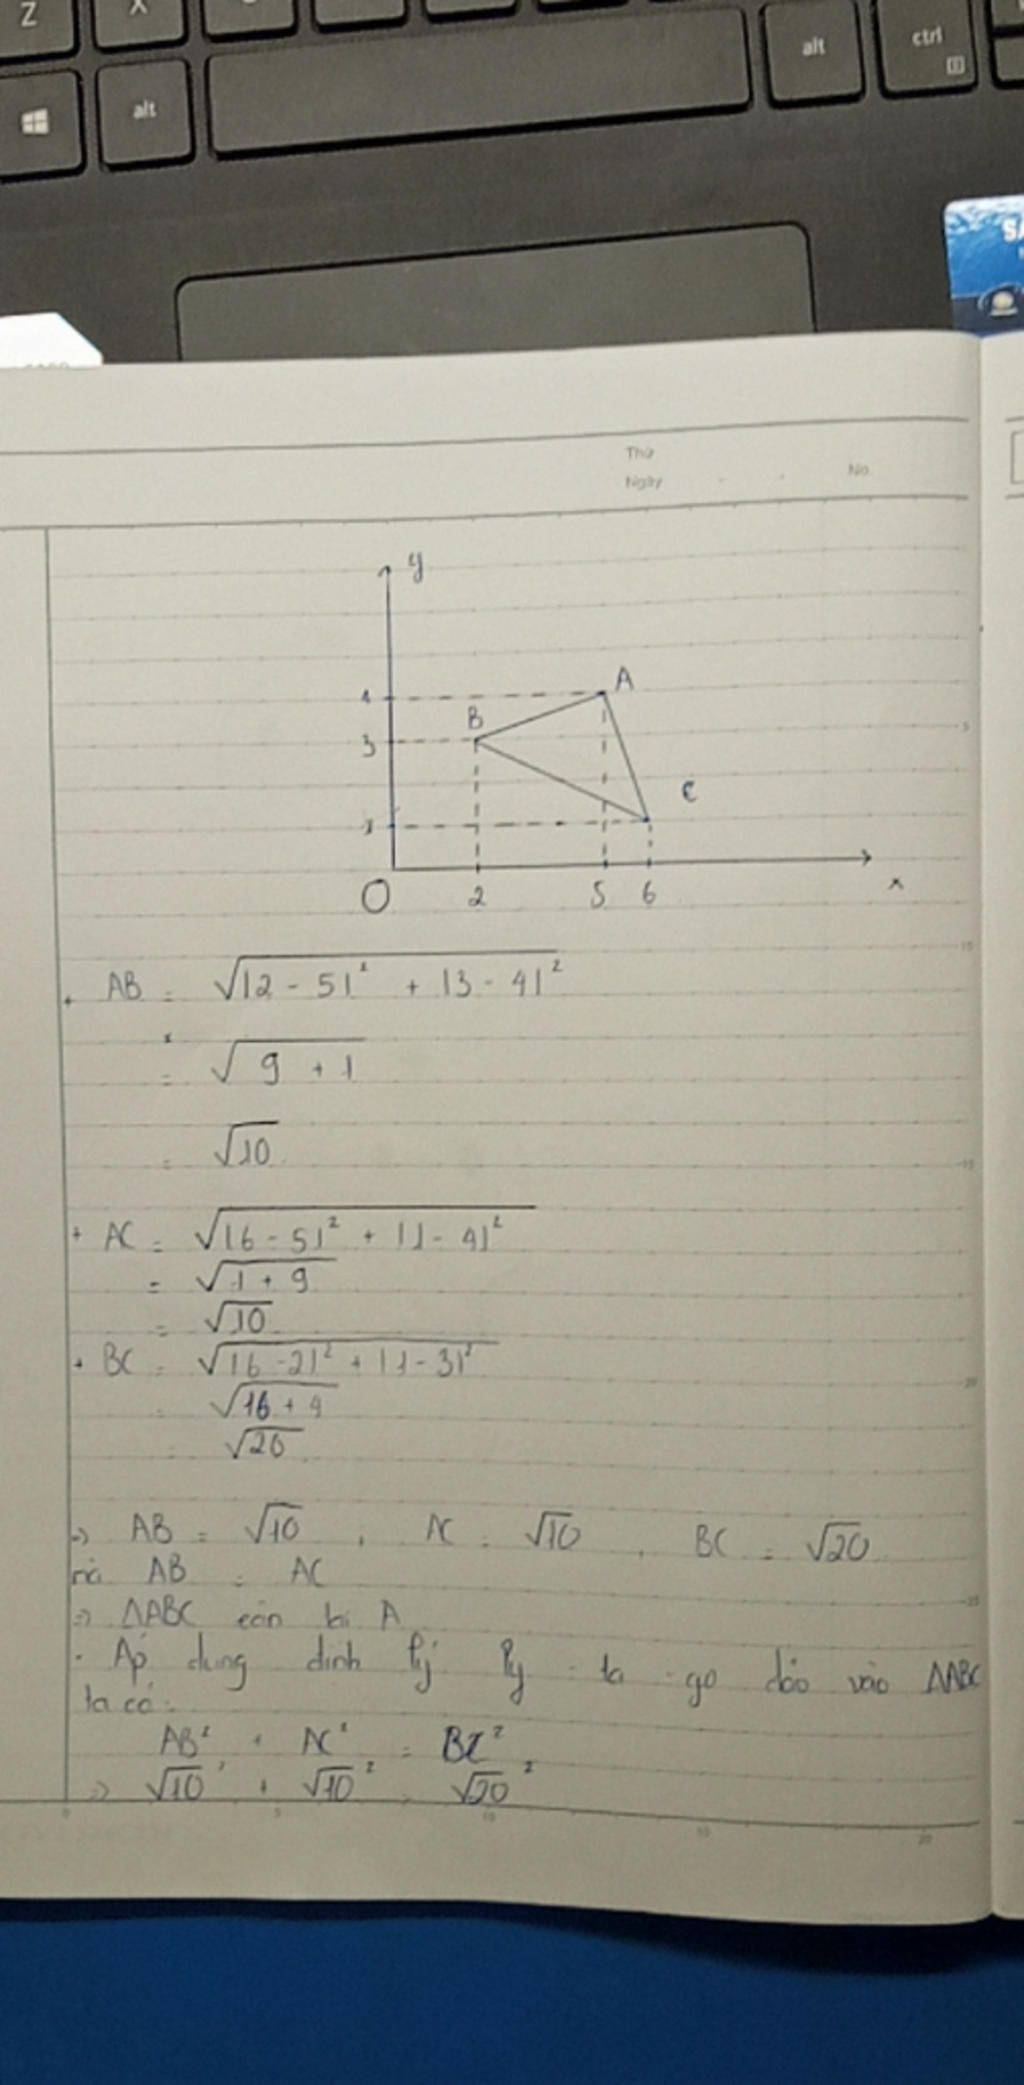 Z X
alt alt ctrl
SA
Thứ
Ngày No.
y
4 A
B
3
C
1
O 2 5 6 x
+ AB = √|2 - 5|² + |3 - 4|²
= √9 + 1
= √10
+ AC = √|6 - 5|² + |1 - 4|²
= √1 + 9
= √10
+ BC = √|6 - 2|² + |1 - 3|²
= √16 + 4
= √20
=> AB = √10 , AC = √10 , BC = √20
mà AB = AC
=> ΔABC cân tại A
. Áp dụng định lý Py - ta - go đảo vào ΔABC
ta có:
AB² + AC² = BC²
=> √10² + √10² = √20²
0 5 10 15 20